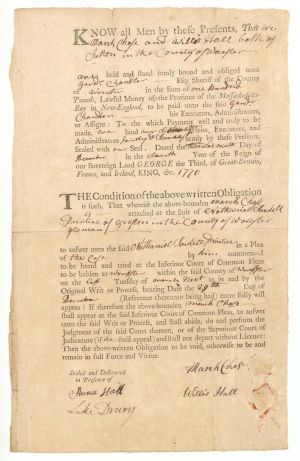 KNOW all Men by these Presents, That we
March Chase and Willis Hall both of
Sutton in the County of Worcester
are held and stand firmly bound and obliged unto
Gardr Chandler Esq; Sheriff of the County
of Worcester in the Sum of one hundred
Pounds, Lawful Money of the Province of the Massachusetts-
Bay in New-England, to be paid unto the said Gardr
Chandler his Executors, Administrators,
or Assigns: To the which Payment well and truly to be
made, we bind our Heirs, Executors, and
Administrators firmly by these Presents.
Sealed with our Seal. Dated the Day of
in the eleventh Year of the Reign of
our Sovereign Lord GEORGE the Third, of Great-Britain,
France, and Ireland, KING, &c. 1770
THE Condition of the above written Obligation
is such, That whereas the above-bounden March Chase
is attached at the Suit of Nathaniel
of Grafton in the County of Worcester
yeoman
to answer unto the said Nathaniel in a Plea
of the Case by him commenced
to be heard and tried at the Inferiour Court of Common Pleas
to be holden at Worcester within the said County of Worcester
on the last Tuesday of march next as is and by the
Original Writ or Process, bearing Date the 29th Day of
(Reference thereunto being had) more fully will
appear: If therefore the above-bounden March Chase
shall appear at the said Inferiour Court of Common Pleas, to answer
unto the said Writ or Process, and shall abide, do and perform the
Judgment of the said Court thereon, or of the Superiour Court of
Judicature (if he shall appeal) and shall not depart without Licence:
Then the above-written Obligation to be void, otherwise to be and
remain in full Force and Virtue.
Sealed and Delivered
in Presence of
March Chase
Hall
Willis Hall
Luke Drury